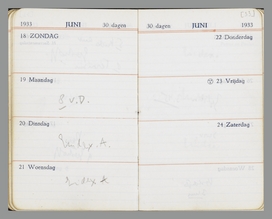 1933 JUNI 30 dagen
18 ZONDAG
19 Maandag
8 v.D.
20 Dinsdag
21 Woensdag
30 dagen JUNI 1933
22 Donderdag
23 Vrijdag
24 Zaterdag